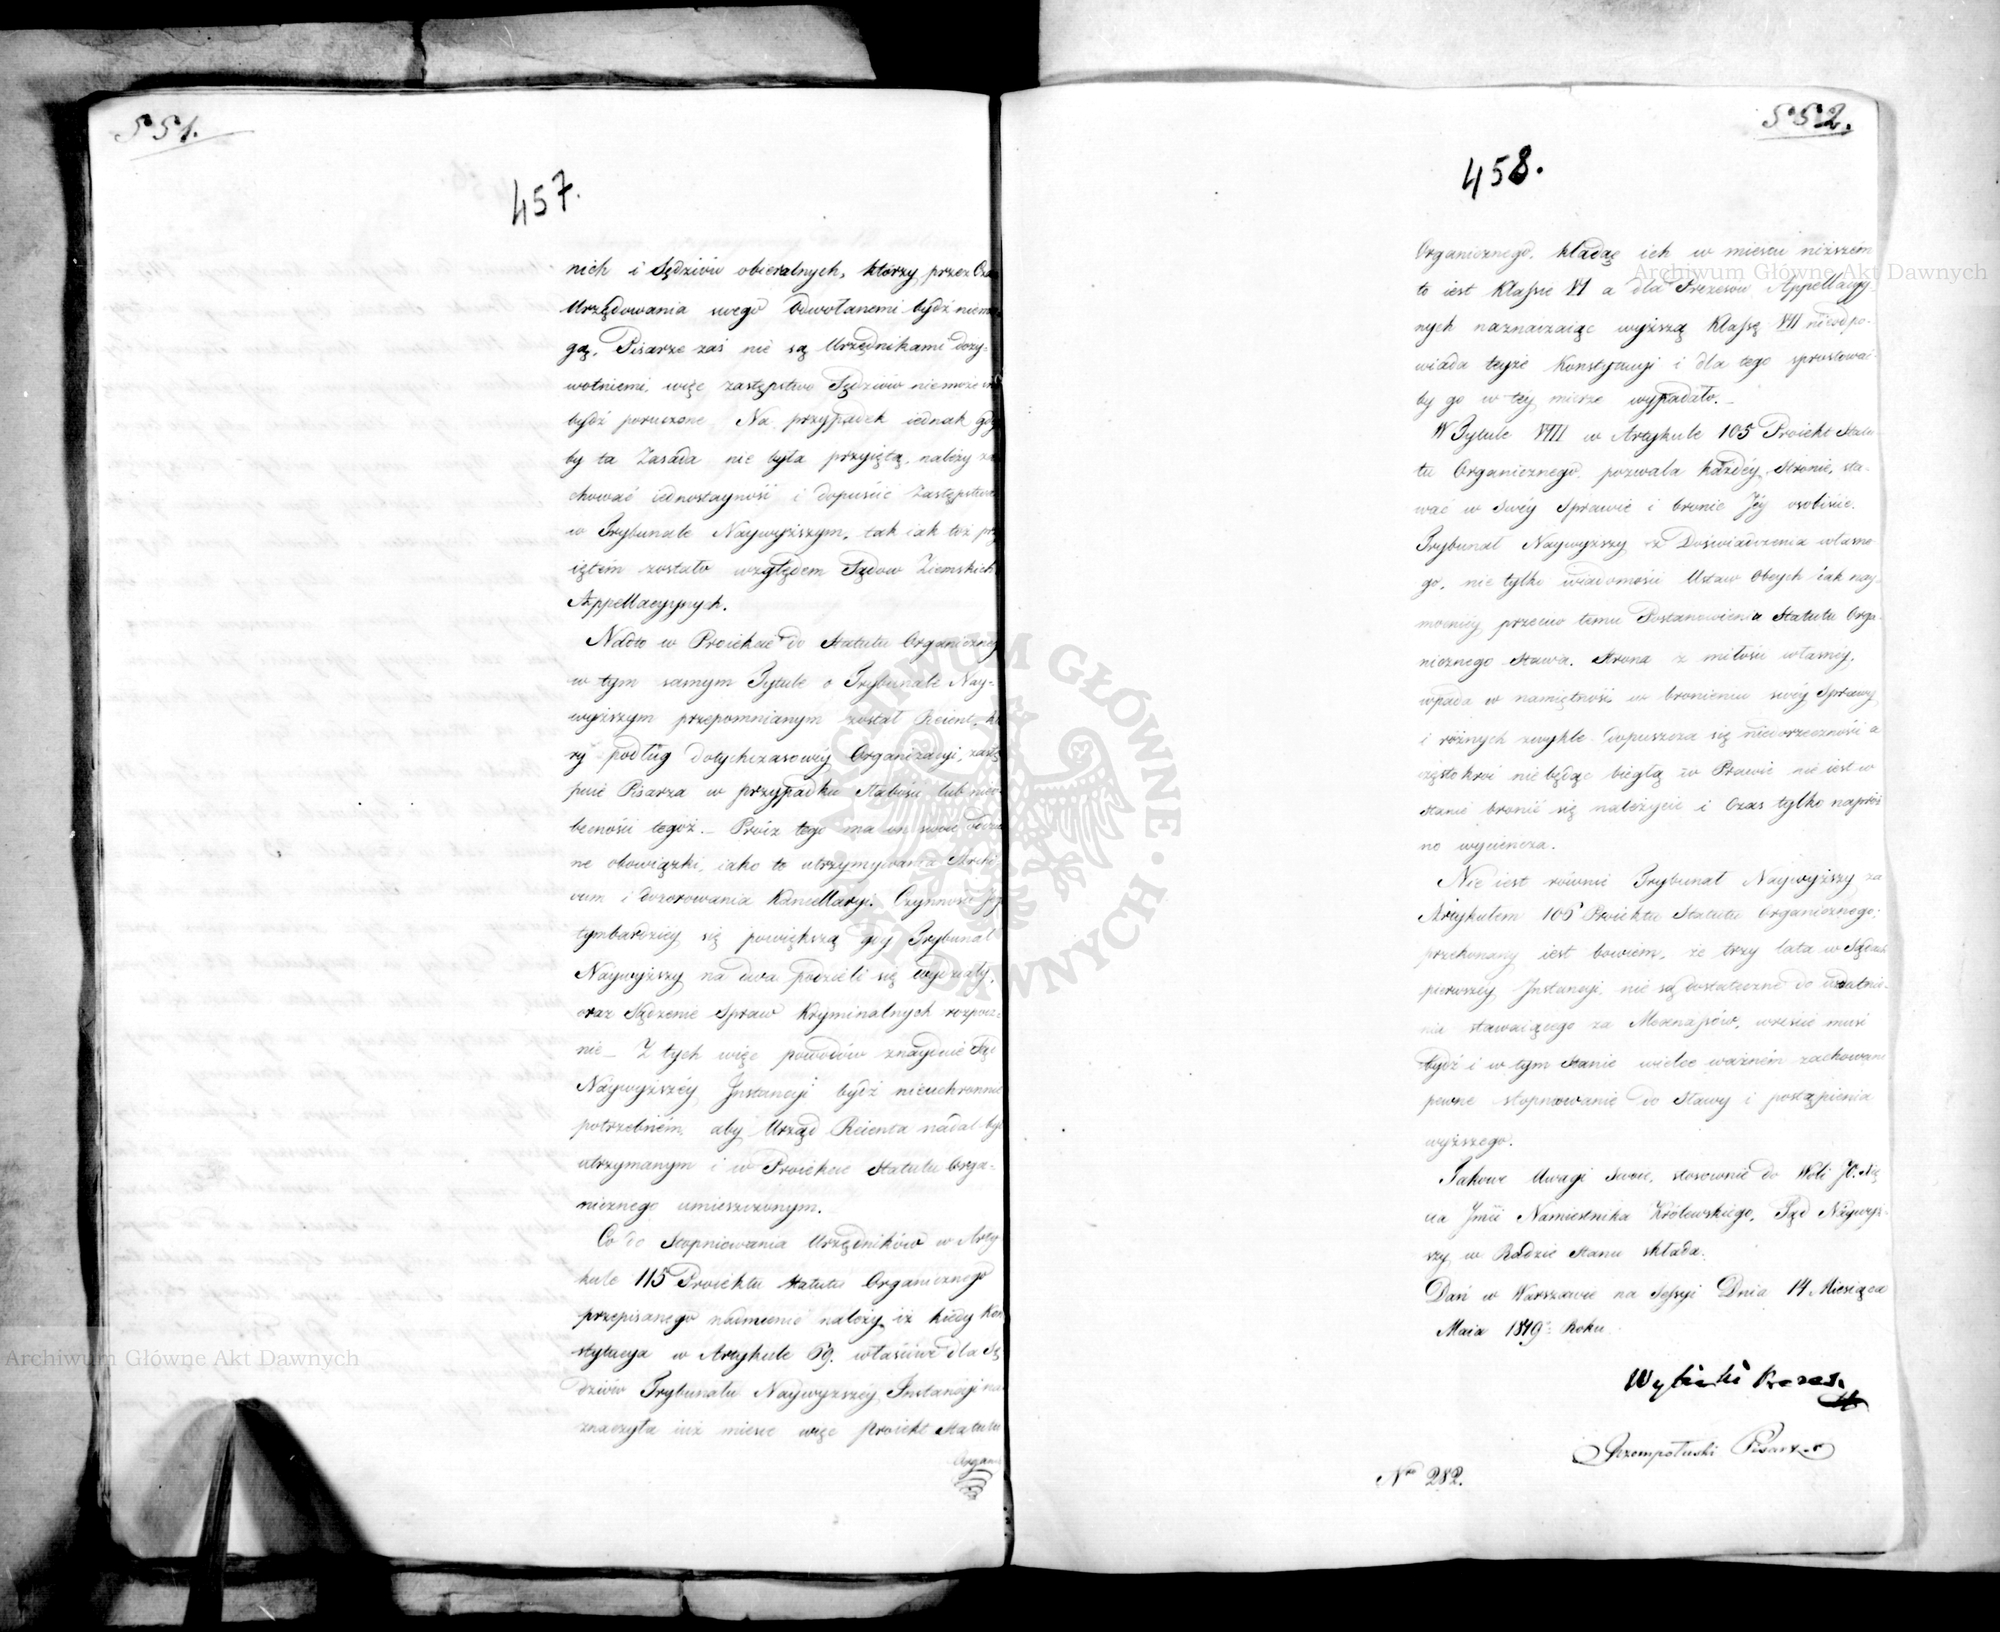 551.
457.
nich i Sędziów obieralnych, którzy przez Czas
Urzędowania swego odwołanemi bydź niemo-
gą, Pisarze zaś nie są Urzędnikami doży-
wotniemi, więc zastępstwo Sędziów niemoże im
bydź poruczone. Na przypadek iednak gdy
by ta Zasada nie była przyiętą, należy za
chować iednostayność i dopuścić Zastępstwo
w Trybunale Naywyższym, tak iak toż przy
iętém zostało względem Sądow Ziemskich
Appellacyynych.
Nadto w Proiekcie do Statutu Organicznego
w tym samym Tytule o Trybunale Nay-
wyższym przepomnianym został Reient, któ
ry podług dotychczasowéy Organizacyi, zastę
puie Pisarza w przypadku Słabości lub nieo-
becności tegoż. Prócz tego ma on swoie
ne obowiązki, iako to utrzymywania Archi
vum i dozorowania Kancellaryi. Czynności Jego
tymbardziey się powiększą gdy Trybunał
Naywyższy na dwa podzieli się wydziały,
oraz Sądzenie Spraw Kryminalnych rozpocz-
nie. Z tych więc powodów znayduie Sąd
Naywyższéy Instancyi bydź nieuchronnie
potrzebném, aby Urząd Reienta nadal był
utrzymanym i w Proiekcie Statutu Orga-
nicznego umieszczonym.
Co do Stopniowania Urzędników w Arty
kule 115 Proiektu Statutu Organicznego
przepisanego nadmienić należy, iż kiedy Kon
stytucya w Artykule 69. właściwe dla Sę
dziów Trybunału Naywyższéy Instancyi na
znaczyła iuż mieysce więc Proiekt Statutu
Organi
552.
458.
Organicznego, kładąc ich w mieyscu niższém
to iest Klassie VI a dla Prezesów Appellacyy-
nych naznaczaiąc wyższą Klassę VII nieodpo-
wiada teyże Konstytucyi i dla tego sprostować
by go w téy mierze wypadało.
W Tytule VIII w Artykule 105 Proiekt Statu-
tu Organicznego pozwala każdéy Stronie, sta-
wać w Swéy Sprawie i bronić Jéy osobiście.
Trybunał Naywyższy z Doświadczenia własne
go, nie tylko wiadomości Ustaw Obcych iak nay-
mocniéy przeciw temu Postanowieniu Statutu Orga-
nicznego Stawa. Strona z miłości własnéy,
wpada w namiętność w bronieniu swéy Sprawy
i różnych zwykle dopuszcza się niedorzeczności a
częstokroć nie będąc biegłą w Prawie nie iest w
stanie bronić się należycie i Czas tylko napróż
no wycieńcza.
Nie iest równie Trybunał Naywyższy za
Artykułem 106 Proiektu Statutu Organicznego;
przekonany iest bowiem, że trzy lata w Sądzie
pierwszéy Instancyi, nie są dostateczne do uzdatnie-
nia stawaiącego za Mecenasów, wreście musi
bydź i w tym Stanie wielce ważném zachowane
pewne stopniowanie do Sławy i postąpienia
wyższego.
Takowe Uwagi Swoie, stosownie do Woli JO. Xię
cia Jmći Namiestnika Królewskiego, Sąd Naywyż-
szy w Radzie Stanu składa.
Dań w Warszawie na Sessyi Dnia 14 Miesiąca
Maia 1819 Roku
Wybicki Prezes.
Szempołuski Pisarz
Nro 282.
Archiwum Główne Akt Dawnych
Archiwum Główne Akt Dawnych
ARCHIWUM GŁÓWNE AKT DAWNYCH